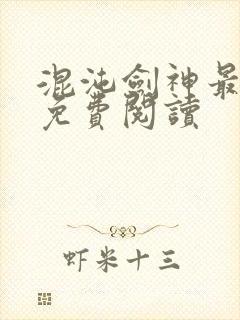 混沌劍神最
免費閱讀
虾米十三